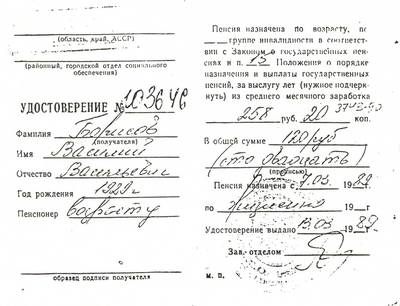 (область, край, АССР)
(районный, городской отдел социального
обеспечения)
УДОСТОВЕРЕНИЕ № 103646
Фамилия Борисов
(получателя)
Имя Василий
Отчество Васильевич
Год рождения 1929г
Пенсионер возрасту
образец подписи получателя
Пенсия назначена по возрасту, по
группе инвалидности в соответст-
вии с Законом о государственных пен-
сиях и п. 15 Положения о порядке
назначения и выплаты государственных
пенсий, за выслугу лет (нужное подчерк-
нуть) из среднего месячного заработка
3743-90
258 руб. 20 коп.
В общей сумме 120 руб
(сто двадцать)
(прописью)
Пенсия назначена с 7.03 1989
по пожизненно 19 г
Удостоверение выдано 13.03 1989
Зав. отделом
м. п.